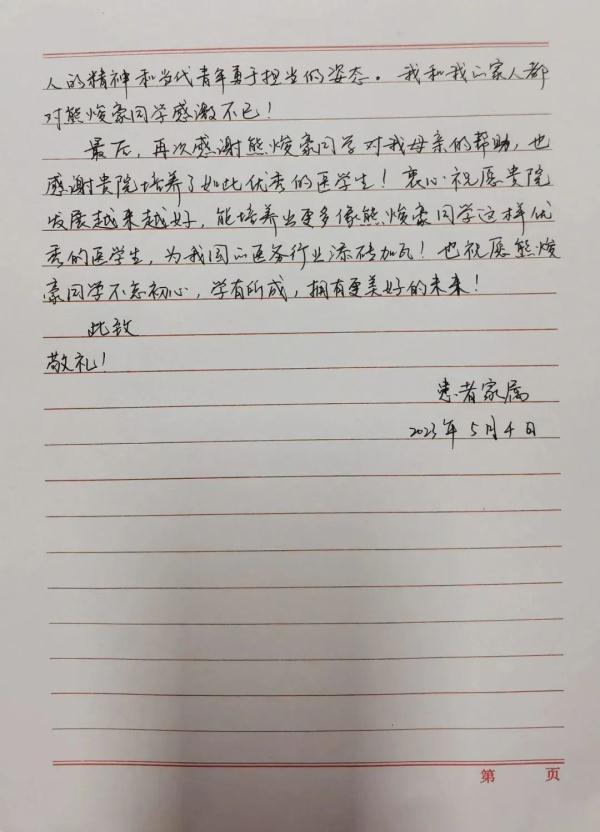 人的精神和当代青年勇于担当的姿态。我和我的家人都
对熊焌豪同学感激不已！
最后，再次感谢熊焌豪同学对我母亲的帮助，也
感谢贵院培养了如此优秀的医学生！衷心祝愿贵院
发展越来越好，能培养出更多像熊焌豪同学这样优
秀的医学生，为我国的医务行业添砖加瓦！也祝愿熊焌
豪同学不忘初心，学有所成，拥有更美好的未来！
此致
敬礼！
患者家属
2023年5月4日
第 页